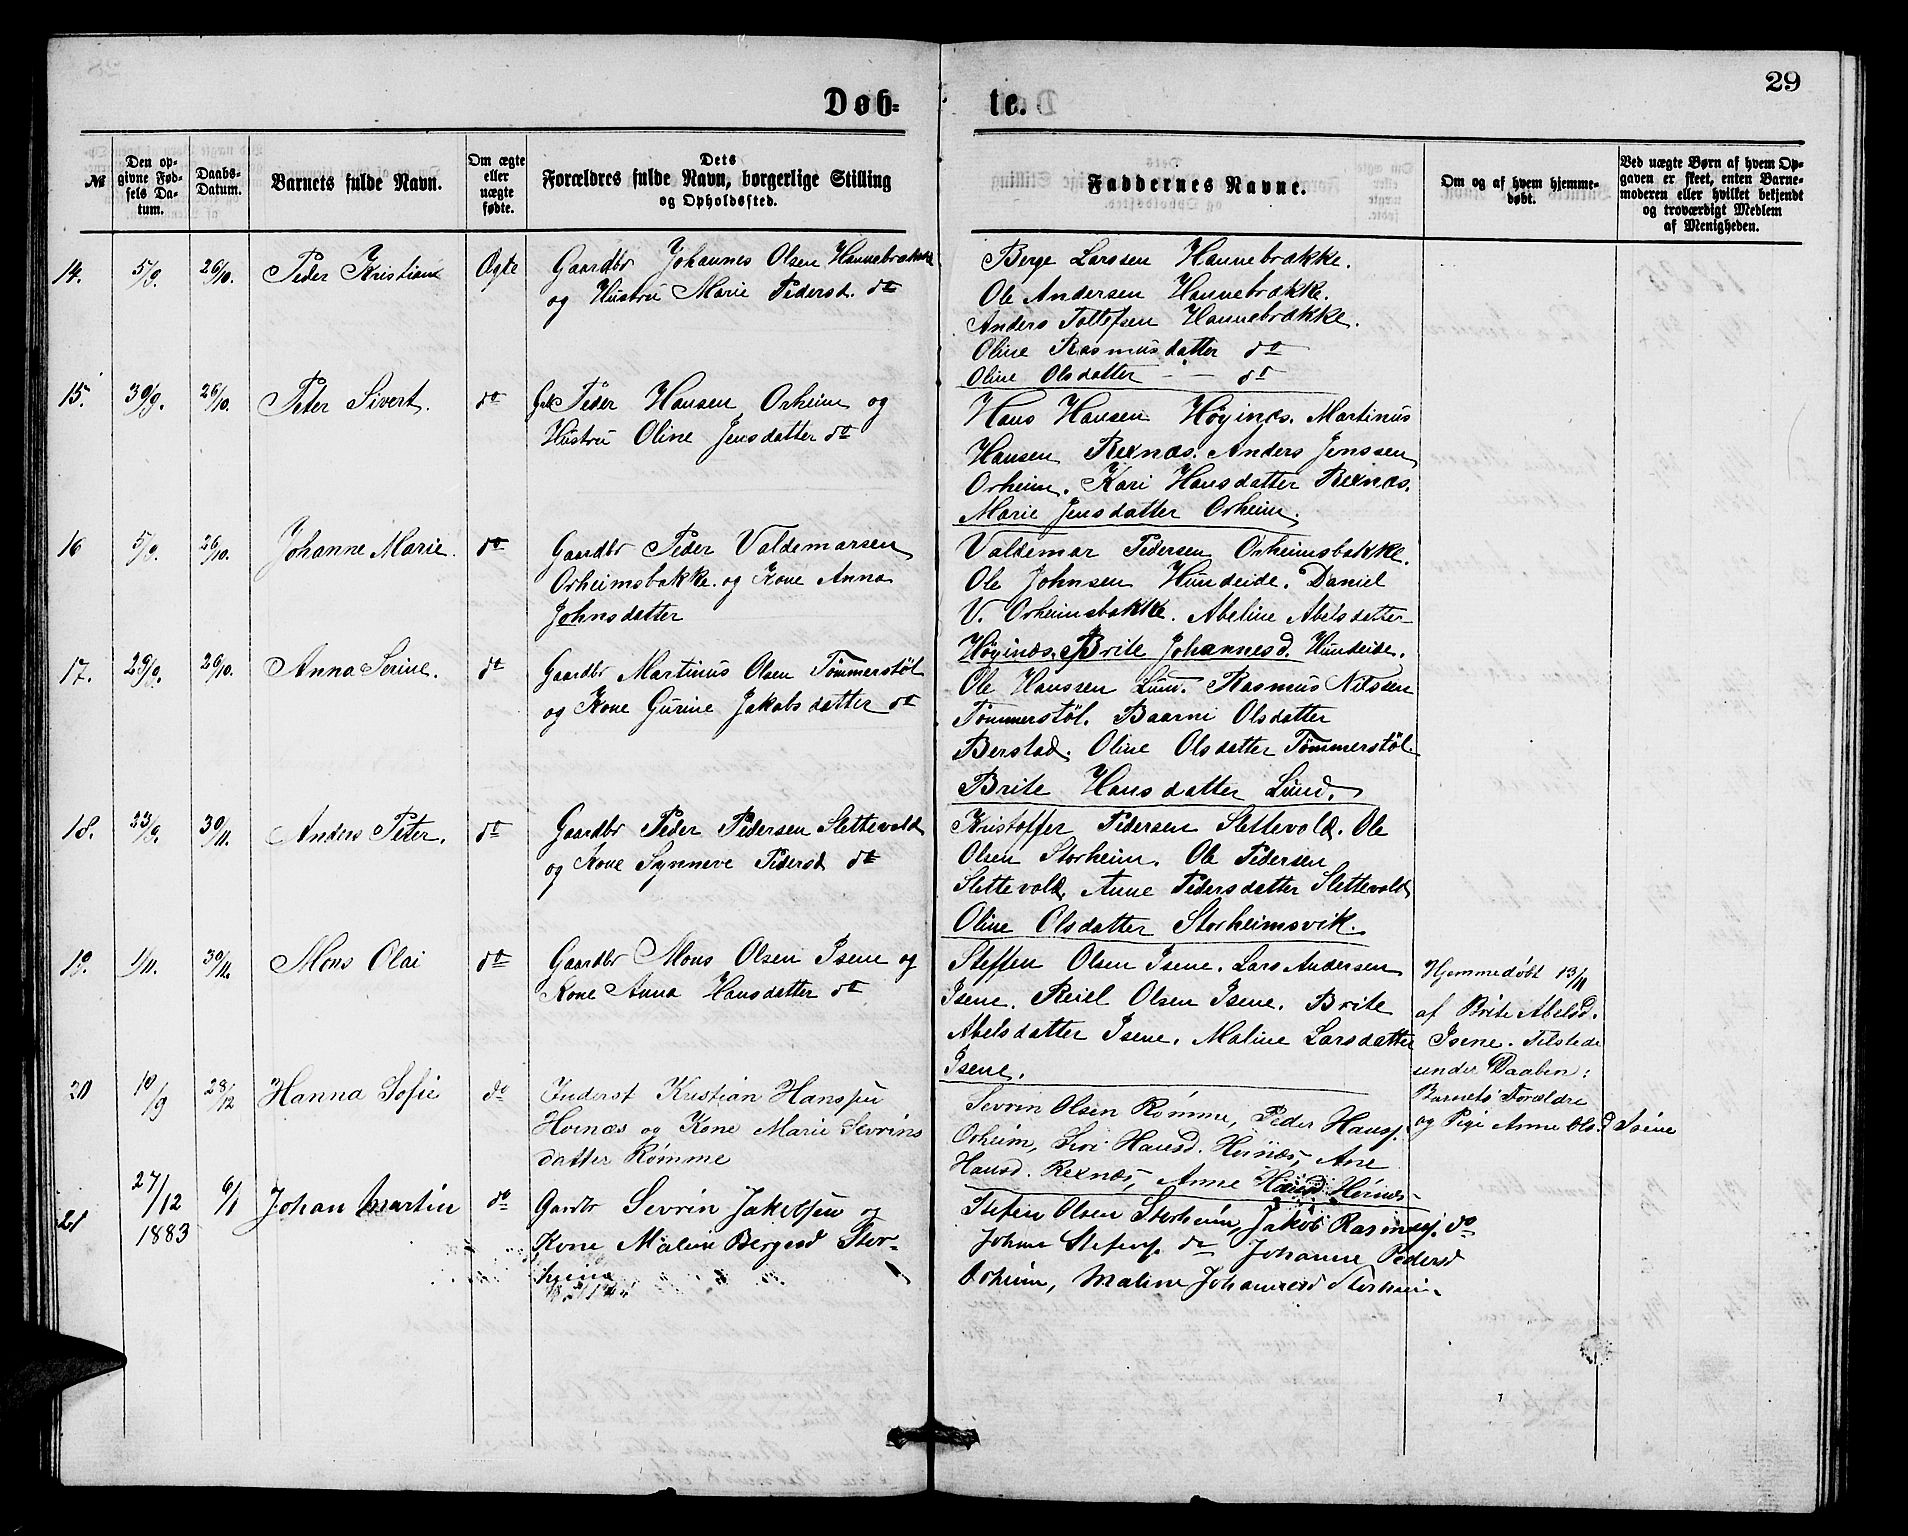 29
Døb- te.
№ Den opgivne Fødsels Datum. Daabs-Datum. Barnets fulde Navn. Om ægte eller uægte fødte. Dets Forældres fulde Navn, borgerlige Stilling og Opholdssted. Faddernes Navne. Om og af hvem hjemmedøbt. Ved uægte Børn af hvem Opgaven er skeet, enten Barnemoderen eller hvilket bekjendt og troværdigt Medlem af Menigheden.
14. 5/9. 26/10. Peder Kristian Ægte Gaardbr Johannes Olsen Hannebrække
og Hustru Marie Pedersd. do
Berge Larssen Hannebrække.
Ole Andersen Hannebrække.
Anders Tollefsen Hannebrække.
Oline Rasmusdatter do
Oline Olsdatter do
15. 30/9. 26/10. Peter Sivert. do Peder Hansen Orheim og
Hustru Oline Jensdatter do
Hans Hansen Høginæs. Martinus
Hansen Rexnæs. Anders Jenssen
Orheim. Kari Hansdatter Rexnæs.
Marie Jensdatter Orheim.
16 5/9. 26/10. Johanne Marie. do Gaardbr Peder Valdemarsen
Orheimsbakke. og Kone Anna
Johnsdatter
Valdemar Pedersen Orheimsbakke.
Ole Johnsen Hundeide. Daniel
V. Orheimsbakke. Abeline Abelsdatter
Høginæs. Brite Johannesd. Hundeide.
17. 29/9. 26/10. Anna Serine. do Gaardbr Martinus Olsen Tømmerstøl
og Kone Gurine Jakobsdatter do
Ole Hanssen Lund. Rasmus Nilssen
Tømmerstøl. Baarni Olsdatter
Berstad. Oline Olsdatter Tømmerstøl
Brite Hansdatter Lund.
18. 23/9. 30/11. Anders Peter. do Gaardbr Peder Pedersen Slettevold
og Kone Synneve Pedersd do
Kristoffer Pedersen Slettevold. Ole
Olsen Storheim. Ole Pedersen
Slettevold, Anne Pedersdatter Slettevold
Oline Olsdatter Storheimsvik.
19. 1/11. 30/11. Mons Olai do Gaardbr Mons Olsen Isene og
Kone Anna Hansdatter do.
Steffen Olsen Isene. Lars Andersen
Isene. Reiel Olsen Isene. Brite
Abelsdatter Isene. Maline Larsdatter
Isene.
Hjemmedøbt 13/11
af Brite Abelsd.
Isene. Tilstede
under Daaben:
Barnets Forældre
og Pige Anne Olsd Isene
20 10/9 28/12 Hanna Sofie do Inderst Kristian Hanssen
Hoinæs og Kone Marie Sevrins
datter Rømme
Sevrin Olsen Rømme, Peder Hanss.
Orheim, Siri Hansd. Heinæs, Ane
Hansd. Rexnæs, Anne Hansd Heinæs
21 27/12 1883 6/1 Johan Martin do Gardbr Sevrin Jakobsen og
Kone Maline Bergesd Stor-
heim
Stefen Olsen Storheim, Jakob Rasmuss. do
Johan Stefens. do Johanne Pedersd
Orheim, Maline Johannesd Storheim